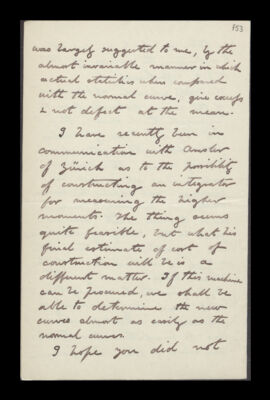 153
was largely suggested to me, by the
almost invariable manner in which
actual statistics when compared
with the normal curve, give excess
& not defect at the mean.
I have recently been in
communication with Amsler
of Zürich as to the possibility
of constructing an integrator
for measuring the higher
moments. The thing seems
quite feasible, but what his
final estimate of cost of
construction will be is a
different matter. If this machine
can be procured, we shall be
able to determine the new
curves almost as easily as the
normal curves.
I hope you did not